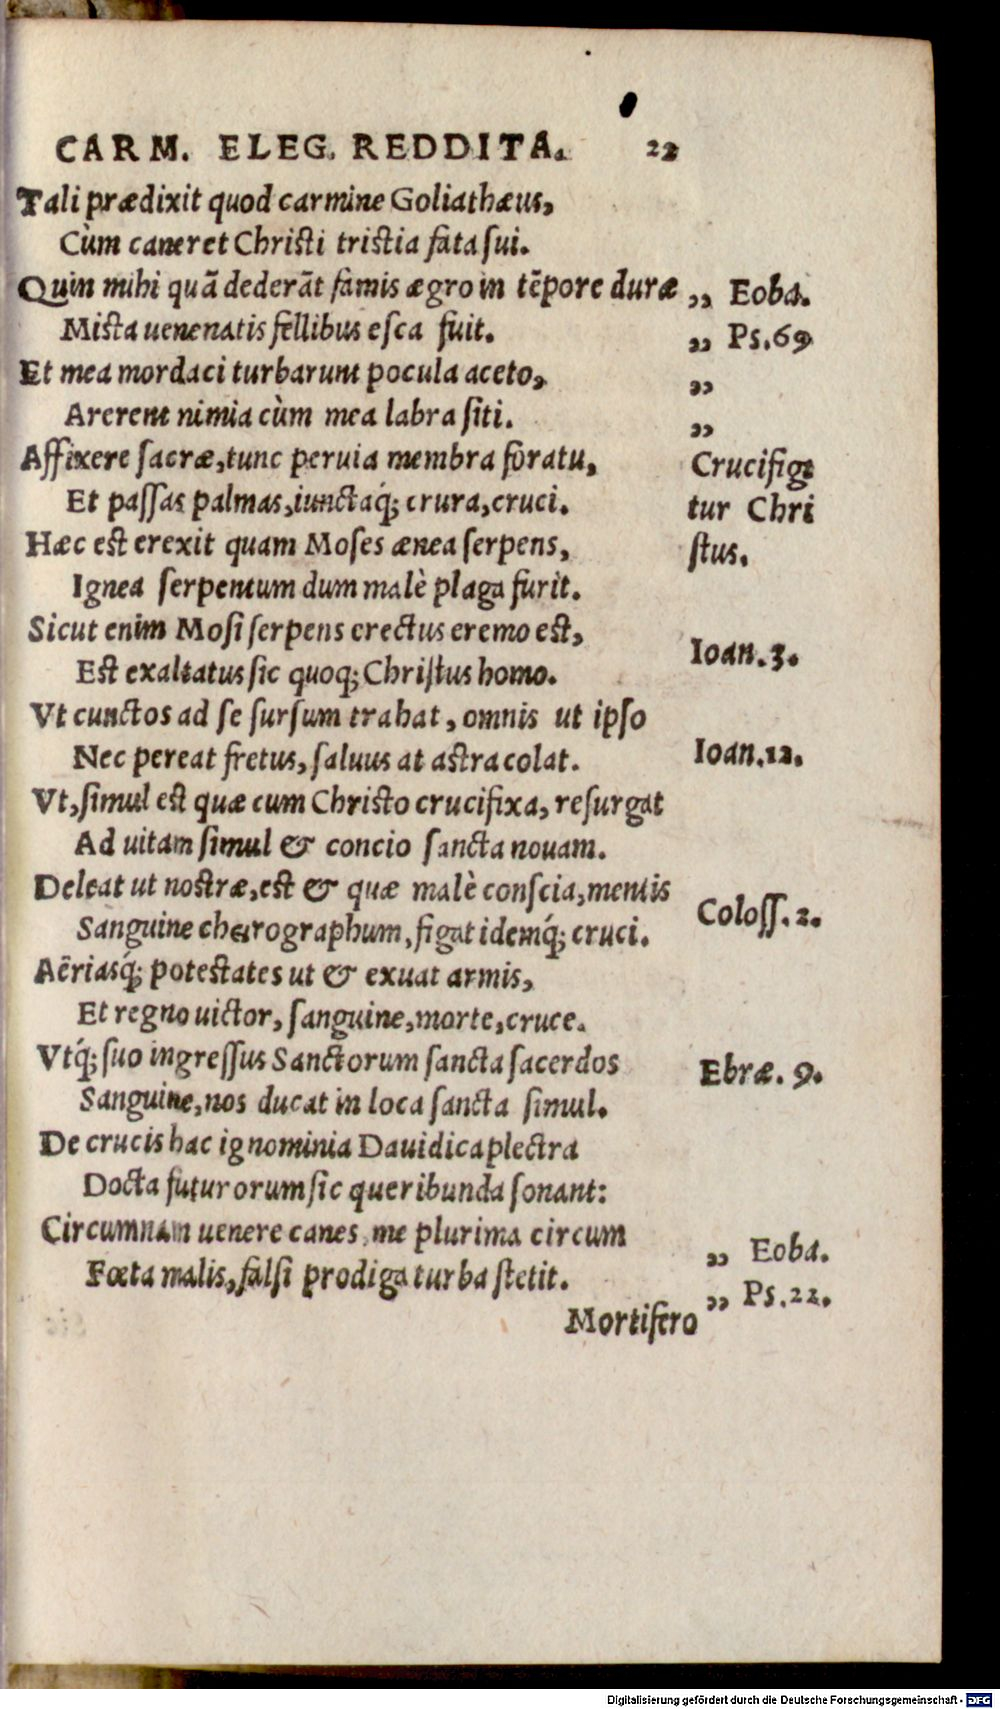 CARM. ELEG. REDDITA. 22
Tali prædixit quod carmine Goliathæus,
Cùm caneret Christi tristia fata sui.
Quin mihi quā dederāt famis ægro in tēpore duræ ,, Eoba.
Mista uenenatis fellibus esca fuit. ,, Ps.69
Et mea mordaci turbarunt pocula aceto, ,,
Arerent nimia cùm mea labra siti. ,,
Affixere sacræ, tunc peruia membra foratu, Crucifigi
Et passas palmas, iunctaq́; crura, cruci. tur Chri
Hæc est erexit quam Moses ænea serpens, stus.
Ignea serpentum dum malè plaga furit.
Sicut enim Mosi serpens erectus eremo est, Ioan.3.
Est exaltatus sic quoq; Christus homo.
Vt cunctos ad se sursum trahat, omnis ut ipso
Nec pereat fretus, saluus at astra colat. Ioan.12.
Vt, simul est quæ cum Christo crucifixa, resurgat
Ad uitam simul & concio sancta nouam.
Deleat ut nostræ, est & quæ malè conscia, mentis
Sanguine cheirographum, figat idemq́; cruci. Coloss. 2.
Aëriasq́; potestates ut & exuat armis,
Et regno uictor, sanguine, morte, cruce.
Vtq́; suo ingressus Sanctorum sancta sacerdos Ebræ. 9.
Sanguine, nos ducat in loca sancta simul.
De crucis hac ignominia Dauidica plectra
Docta futurorum sic queribunda sonant:
Circumnam uenere canes, me plurima circum ,, Eoba.
Fœta malis, falsi prodiga turba stetit. ,, Ps.22.
Mortifero
Digitalisierung gefördert durch die Deutsche Forschungsgemeinschaft - DFG